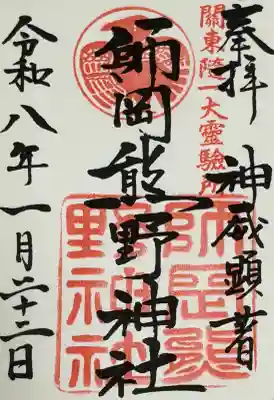 奉拝 神威顕著
關東随一大霊驗所
師岡熊野神社
師岡熊野神社
令和八年一月二十二日